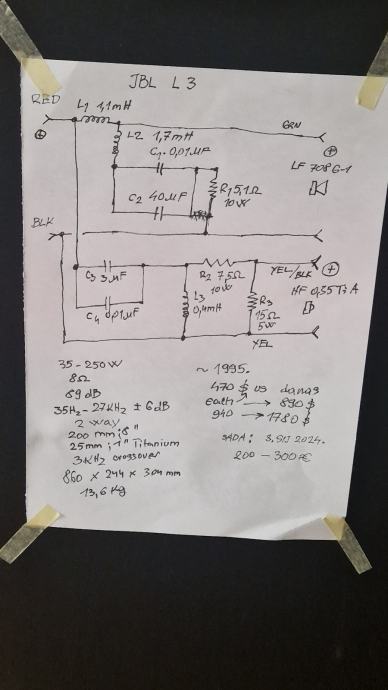 JBL L3
RED
L1 1,1mH
L2 1,7mH
GRN
C1 0,01µF
LF 708G-1
R1 5,1Ω
10W
C2 40µF
BLK
C3 3µF
R2 7,5Ω
10W
YEL/BLK
HF 0,35TiA
L3
0,4mH
R3
15Ω
5W
C4 0,01µF
YEL
35-250W
8Ω
89dB
35Hz-27KHz ±6dB
2 way
200 mm; 8"
25mm; 1" Titanium
3KHz crossover
860 x 244 x 304 mm
13,6 Kg
~ 1995.
470 $ US danas
each → 890 $
940 → 1780 $
SADA: 3.SIJ 2024.
200 - 300 €